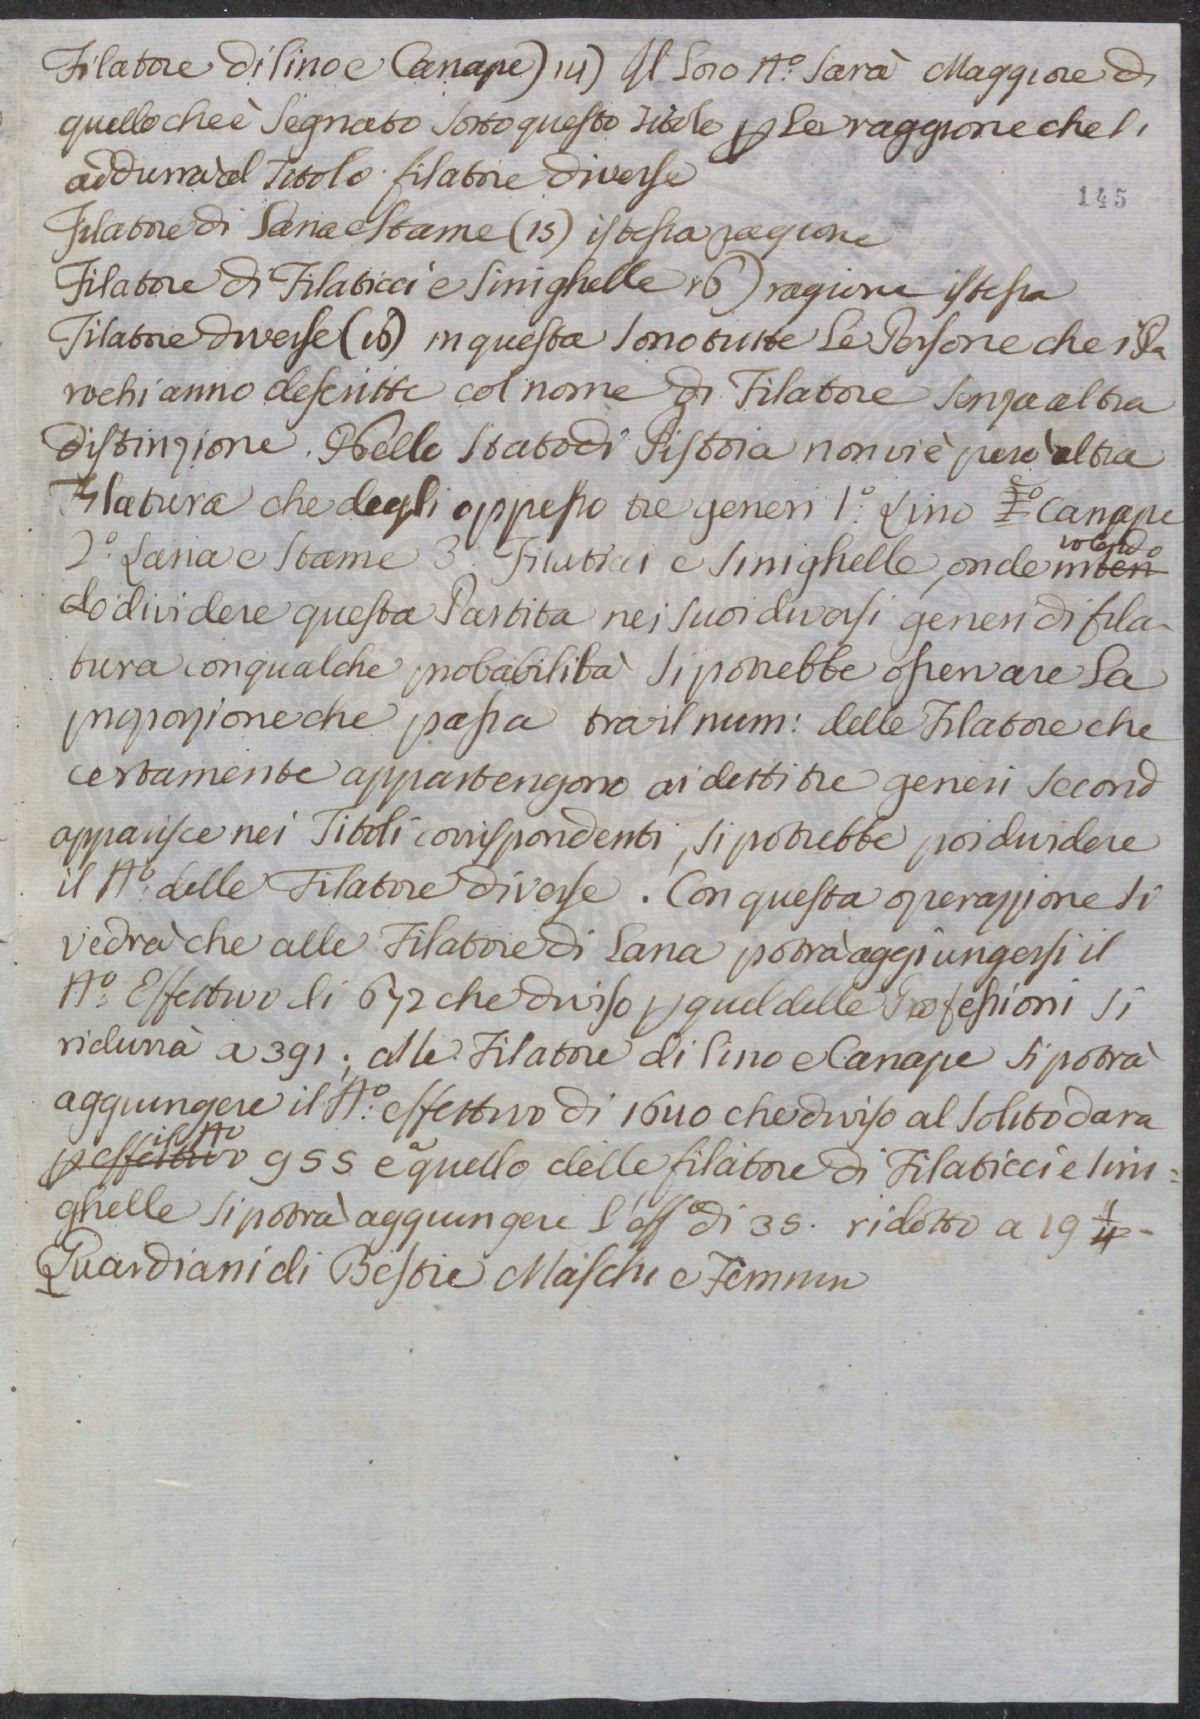 Filatore di lino e Canape) 14) Il loro N.o sarà Maggiore di
quello che è segnato sotto questo titolo p le raggione che si
addurrà al Titolo filatore diverse
145
Filatore di Lana e stame (15) istessa ragione
Filatore di Filaticci e Sinighelle 16) ragione istessa
Filatore diverse (16) in questa sono tutte le Persone che i Pa
rochi anno descritte col nome di Filatore senza altra
distinzione. Nello stato di Pistoia non vi è però altra
Filatura che degli appesso tre generi 1.o Lino e 2o Canape
2.o Lana e stame 3. Filaticci e sinighelle, onde inten volendo
do dividere questa Partita nei suoi diversi generi di fila-
tura con qualche probabilità si potrebbe osservare la
proporzione che passa tra il num: delle Filatore che
certamente appartengono ai detti tre generi second
apparisce nei Titoli corrispondenti, si potrebbe poi dividere
il N.o delle Filatore diverse. Con questa operazzione si
vedrà che alle Filatore di Lana potrà aggiungersi il
N.o Effettivo di 672 che diviso p quel delle Professioni si
ridurrà a 391; alle Filatore di lino e Canape si potrà
aggiungere il N.o effettivo di 1640 che diviso al solito dara
p effettivo il No 955 e a quello delle filatore di Filaticci e sini=
ghelle si potrà aggiungere l'effo di 35. ridotto a 19
Guardiani di Bestie Maschi e Femmin